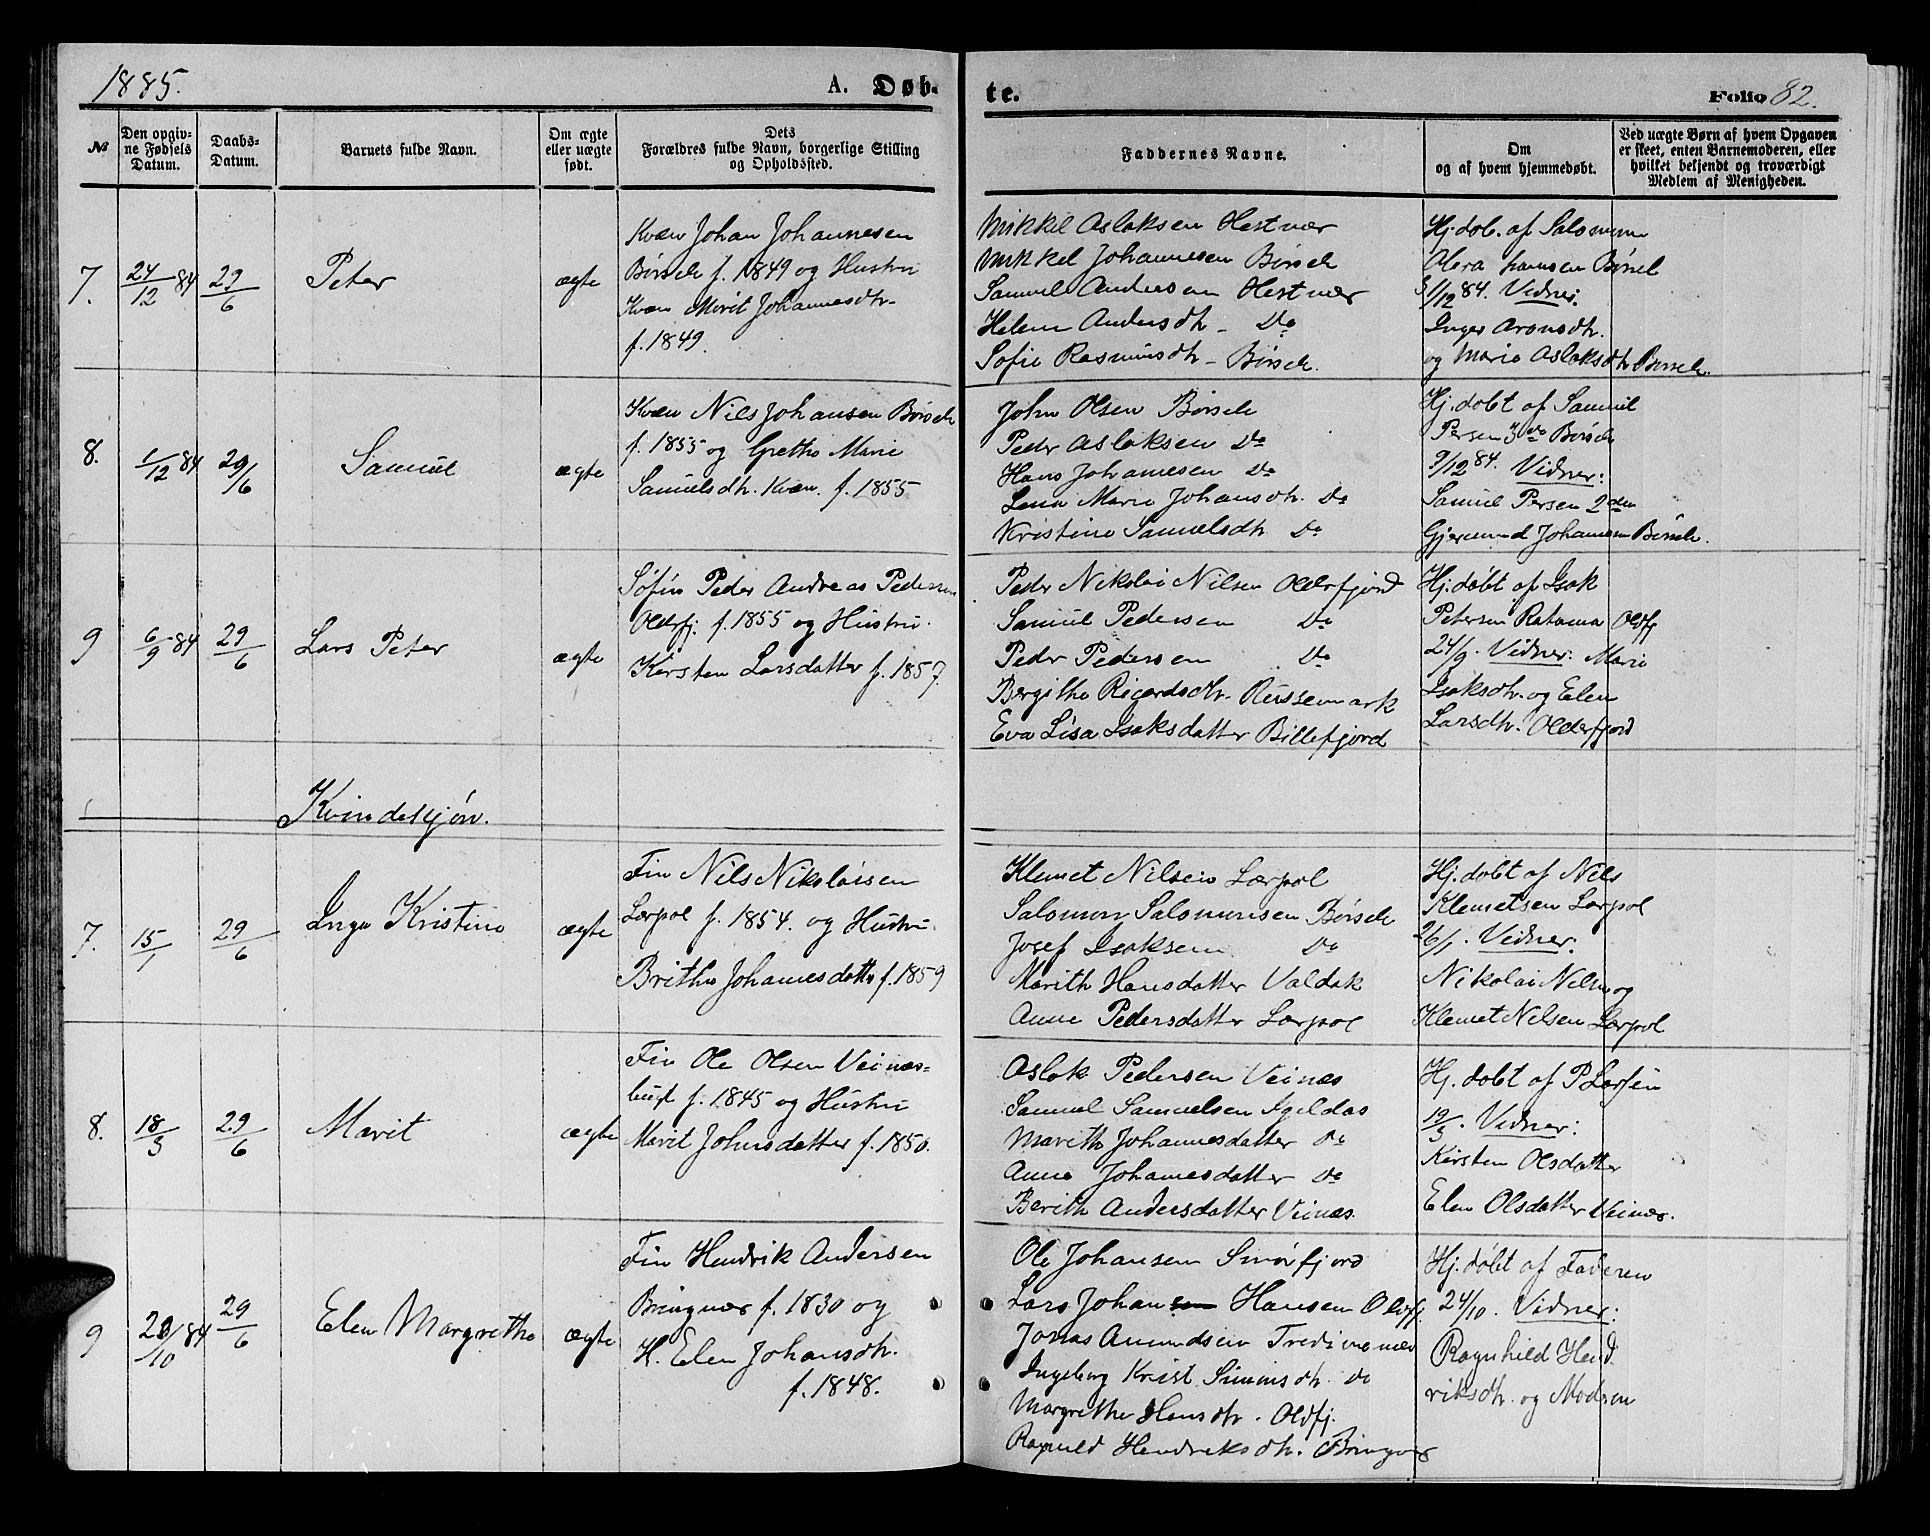 1885.
A. Døb-
te.
Folio 82.
№
Den opgiv-
ne Fødsels
Datum.
Daabs-
Datum.
Barnets fulde Navn.
Om ægte
eller uægte
født.
Dets
Forældres fulde Navn, borgerlige Stilling
og Opholdssted.
Faddernes Navne.
Om
og af hvem hjemmedøbt.
Ved uægte Børn af hvem Opgaven
er skeet, enten Barnemoderen, eller
hvilket bekjendt og troværdigt
Medlem af Menigheden.
7.
24/12 84
29/6
Peter
ægte
Kvæn Johan Johannesen
Børsele f. 1849 og Hustru
Kvæn Marit Johannesdtr.
f. 1849.
Mikkel Aslaksen Hestnær
Mikkel Johannesen Børsele
Samuel Andersen Hestnær
Helene Andersdtr - Do
Sofie Rasmusdtr - Børsele.
Hj. døb. af Salomon
Hansen Børsel
31/12 84. Vidner:
Inger Aronsdtr.
og Marie Aslaksdtr Børsele.
8.
1/12 84
29/6
Samuel
ægte
Kvæn Nils Johansen Børsele
f. 1855 og Grethe Marie
Samuelsdtr. Kvæn. f. 1855
John Olsen Børsele
Peder Aslaksen Do
Hans Johannesen Do
Lena Marie Johansdtr. Do
Kristine Samuelsdtr Do
Hj. døbt af Samuel
Persen 3die Børsele
9/12 84. Vidner:
Samuel Persen 2den
Gjermund Johannesen Børsele.
9
6/9 84
29/6
Lars Peter
ægte
Søfin Peder Andreas Pedersen
Olderfj. f. 1855 og Hustru.
Kersten Larsdatter f. 1857.
Peder Nikolai Nilsen Olderfjord
Samuel Pedersen Do
Peder Pedersen Do
Bergithe Rigardsdtr. Russemark
Eva Lisa Isaksdatter Billefjord
Hj. døbt af Isak
Petersen Ratama Oldfj
24/9. Vidner: Marie
Isaksdtr. og Elen
Larsdtr. Olderfjord
Kvindekjøn.
7.
15/1
29/6
Inga Kristine
ægte
Fin Nils Nikolaisen
Lærpol f. 1854. og Hustru.
Brithe Johannesdatter f. 1859
Klemet Nilsen Lærpol
Salomon Salomonsen Børsele
Josef Isaksen Do
Marith Hansdatter Valdak
Anne Pedersdatter Lærpol
Hj. døbt af Nils
Klemetsen Lærpol
26/1. Vidner:
Nikolai Nilsen og
Klemet Nilsen Lærpol
8.
18/3
29/6
Marit
ægte
Fin Ole Olsen Veinæs-
bugt f. 1845 og Hustru
Marit Johnsdatter f. 1850.
Aslak Pedersen Veinæs
Samuel Samuelsen Igeldas
Marithe Johannesdatter Do
Anne Johannesdatter Do
Berith Andersdatter Veinæs.
Hj. døbt af P Larsen
19/3. Vidner:
Kirsten Olsdatter
Elen Olsdatter Veinæs.
9
20/10 84
29/6
Elen Margrethe
ægte
Fin Hendrik Andersen
Bringnæs f. 1830 og
H. Elen Johansdtr.
f. 1848.
Ole Johansen Smørfjord
Lars Johansen Hansen Oldfj.
Jonas Amundsen
Ingeborg Krist. Simmsdtr. Do
Margrethe Hansdtr. Oldfj.
Ragnild Hendriksdtr. Bringnæs
Hj. døbt af Faderen
24/10. Vidner:
Ragnhild Hend
riksdtr. og Madsen